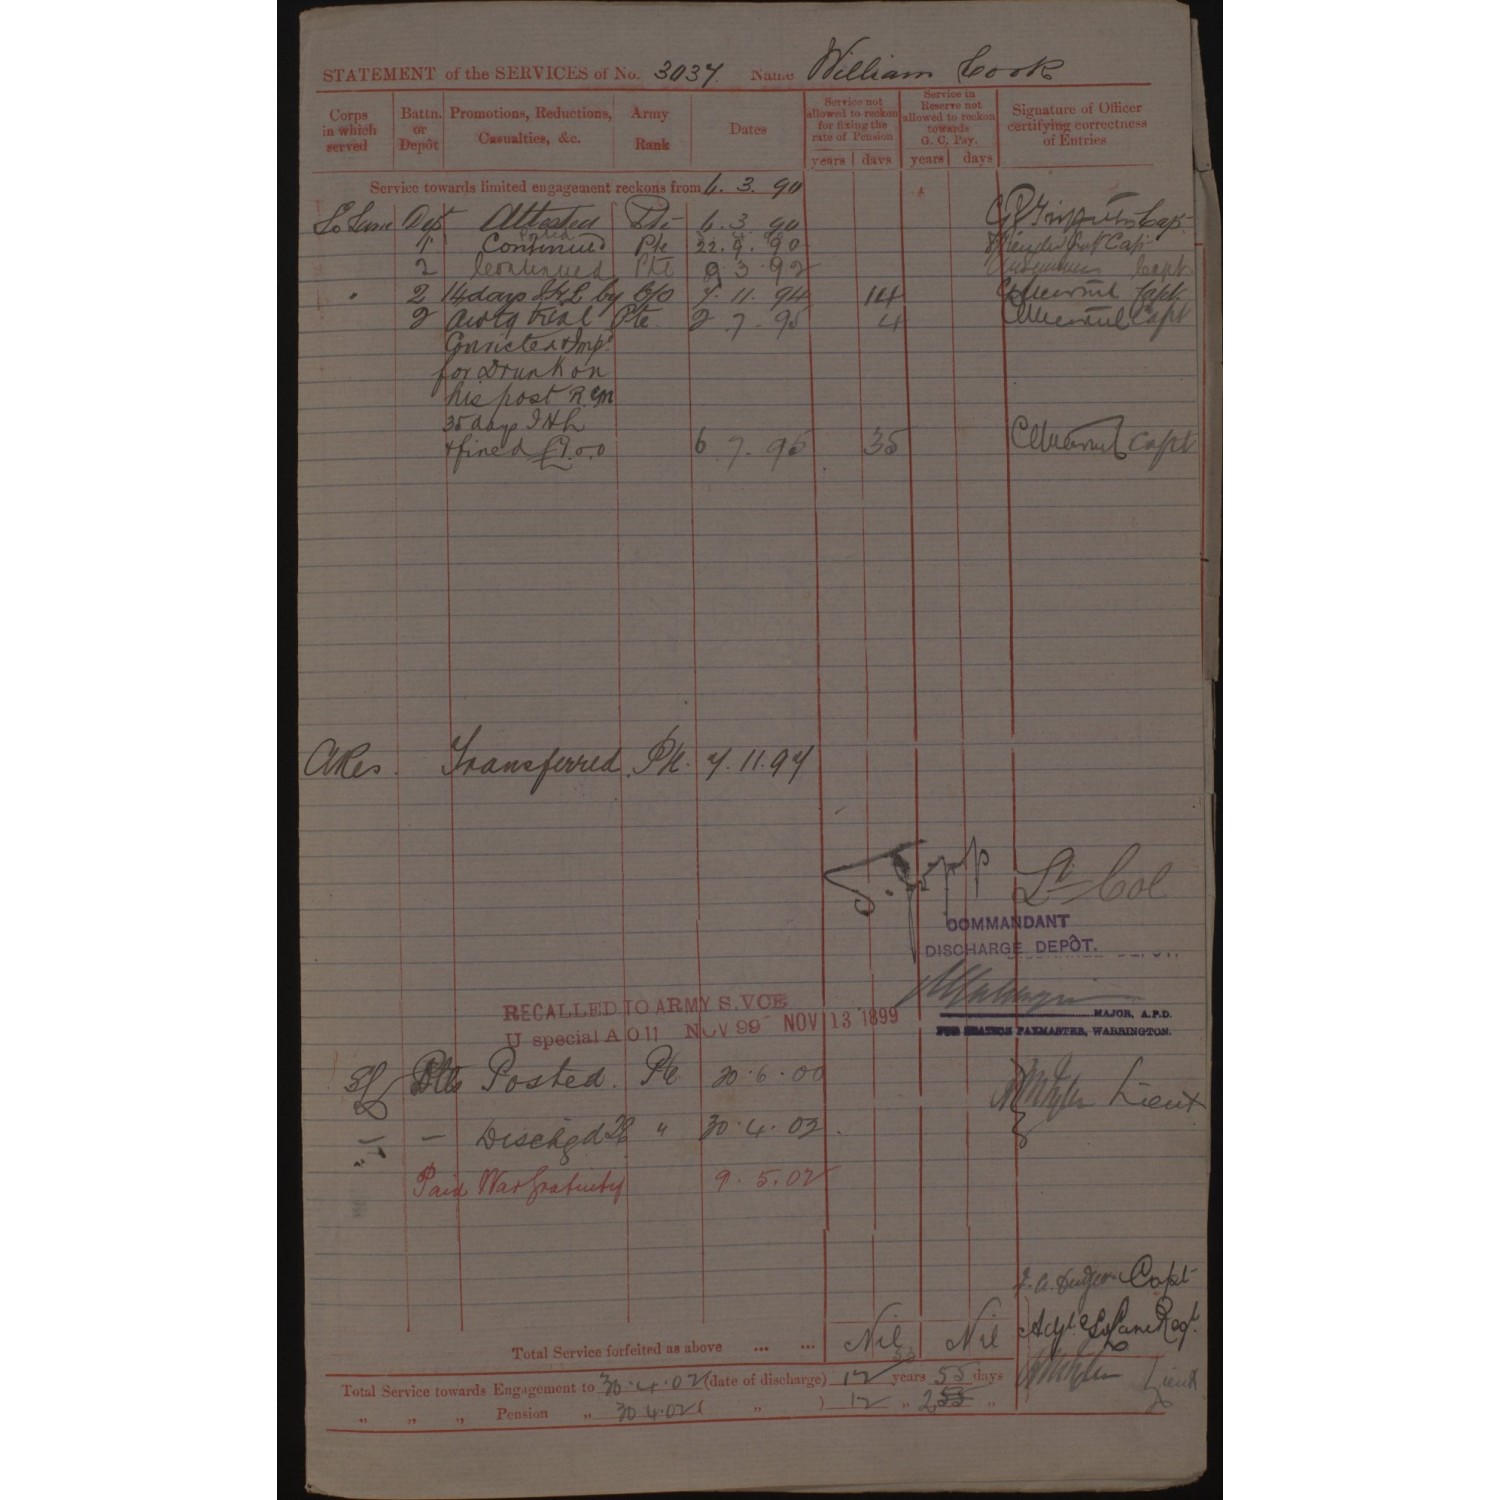 STATEMENT of the SERVICES of No. 3037 Name William Cook
Corps in which served
Battn. or Depôt
Promotions, Reductions, Casualties, &c.
Army Rank
Dates
Service not allowed to reckon for fixing the rate of Pension
years days
Service in Reserve not allowed to reckon towards G. C. Pay.
years days
Signature of Officer certifying correctness of Entries
Service towards limited engagement reckons from 6. 3. 90
So Lanc Dep Attested Pte 6. 3. 90 Capt
1 Pte 22. 9. 90 Capt
2 Continued Pte 9 3 92 Capt
2 14 days by C/O 7. 11. 94 14 Capt
2 awtg trial Pte. 2 7. 95 4 Capt
Convicted & Imp.
for Drunk on
his post
35 days I H L
& fined £1.0.0 6. 7. 95 35 Capt
A Res. Transferred Pte. 7. 11. 97
Lt Col
COMMANDANT
DISCHARGE DEPÔT.
RECALLED TO ARMY S. VCE
U special A O 11 NOV 99 NOV 13 1899
MAJOR, A.P.D.
PAYMASTER, WARRINGTON.
SL Posted. Pte 30. 6. 00 Lieut
— — Dischgd " 30. 4. 02.
Paid War Gratuity 9. 5. 02
Capt
Adjt. So Lanc Regt.
Total Service forfeited as above ... ... Nil Nil
Total Service towards Engagement to 30. 4. 02 (date of discharge) 12 years 55 days Lieut
„ „ „ Pension „ 30 4. 02 ( „ ) 12 „ „